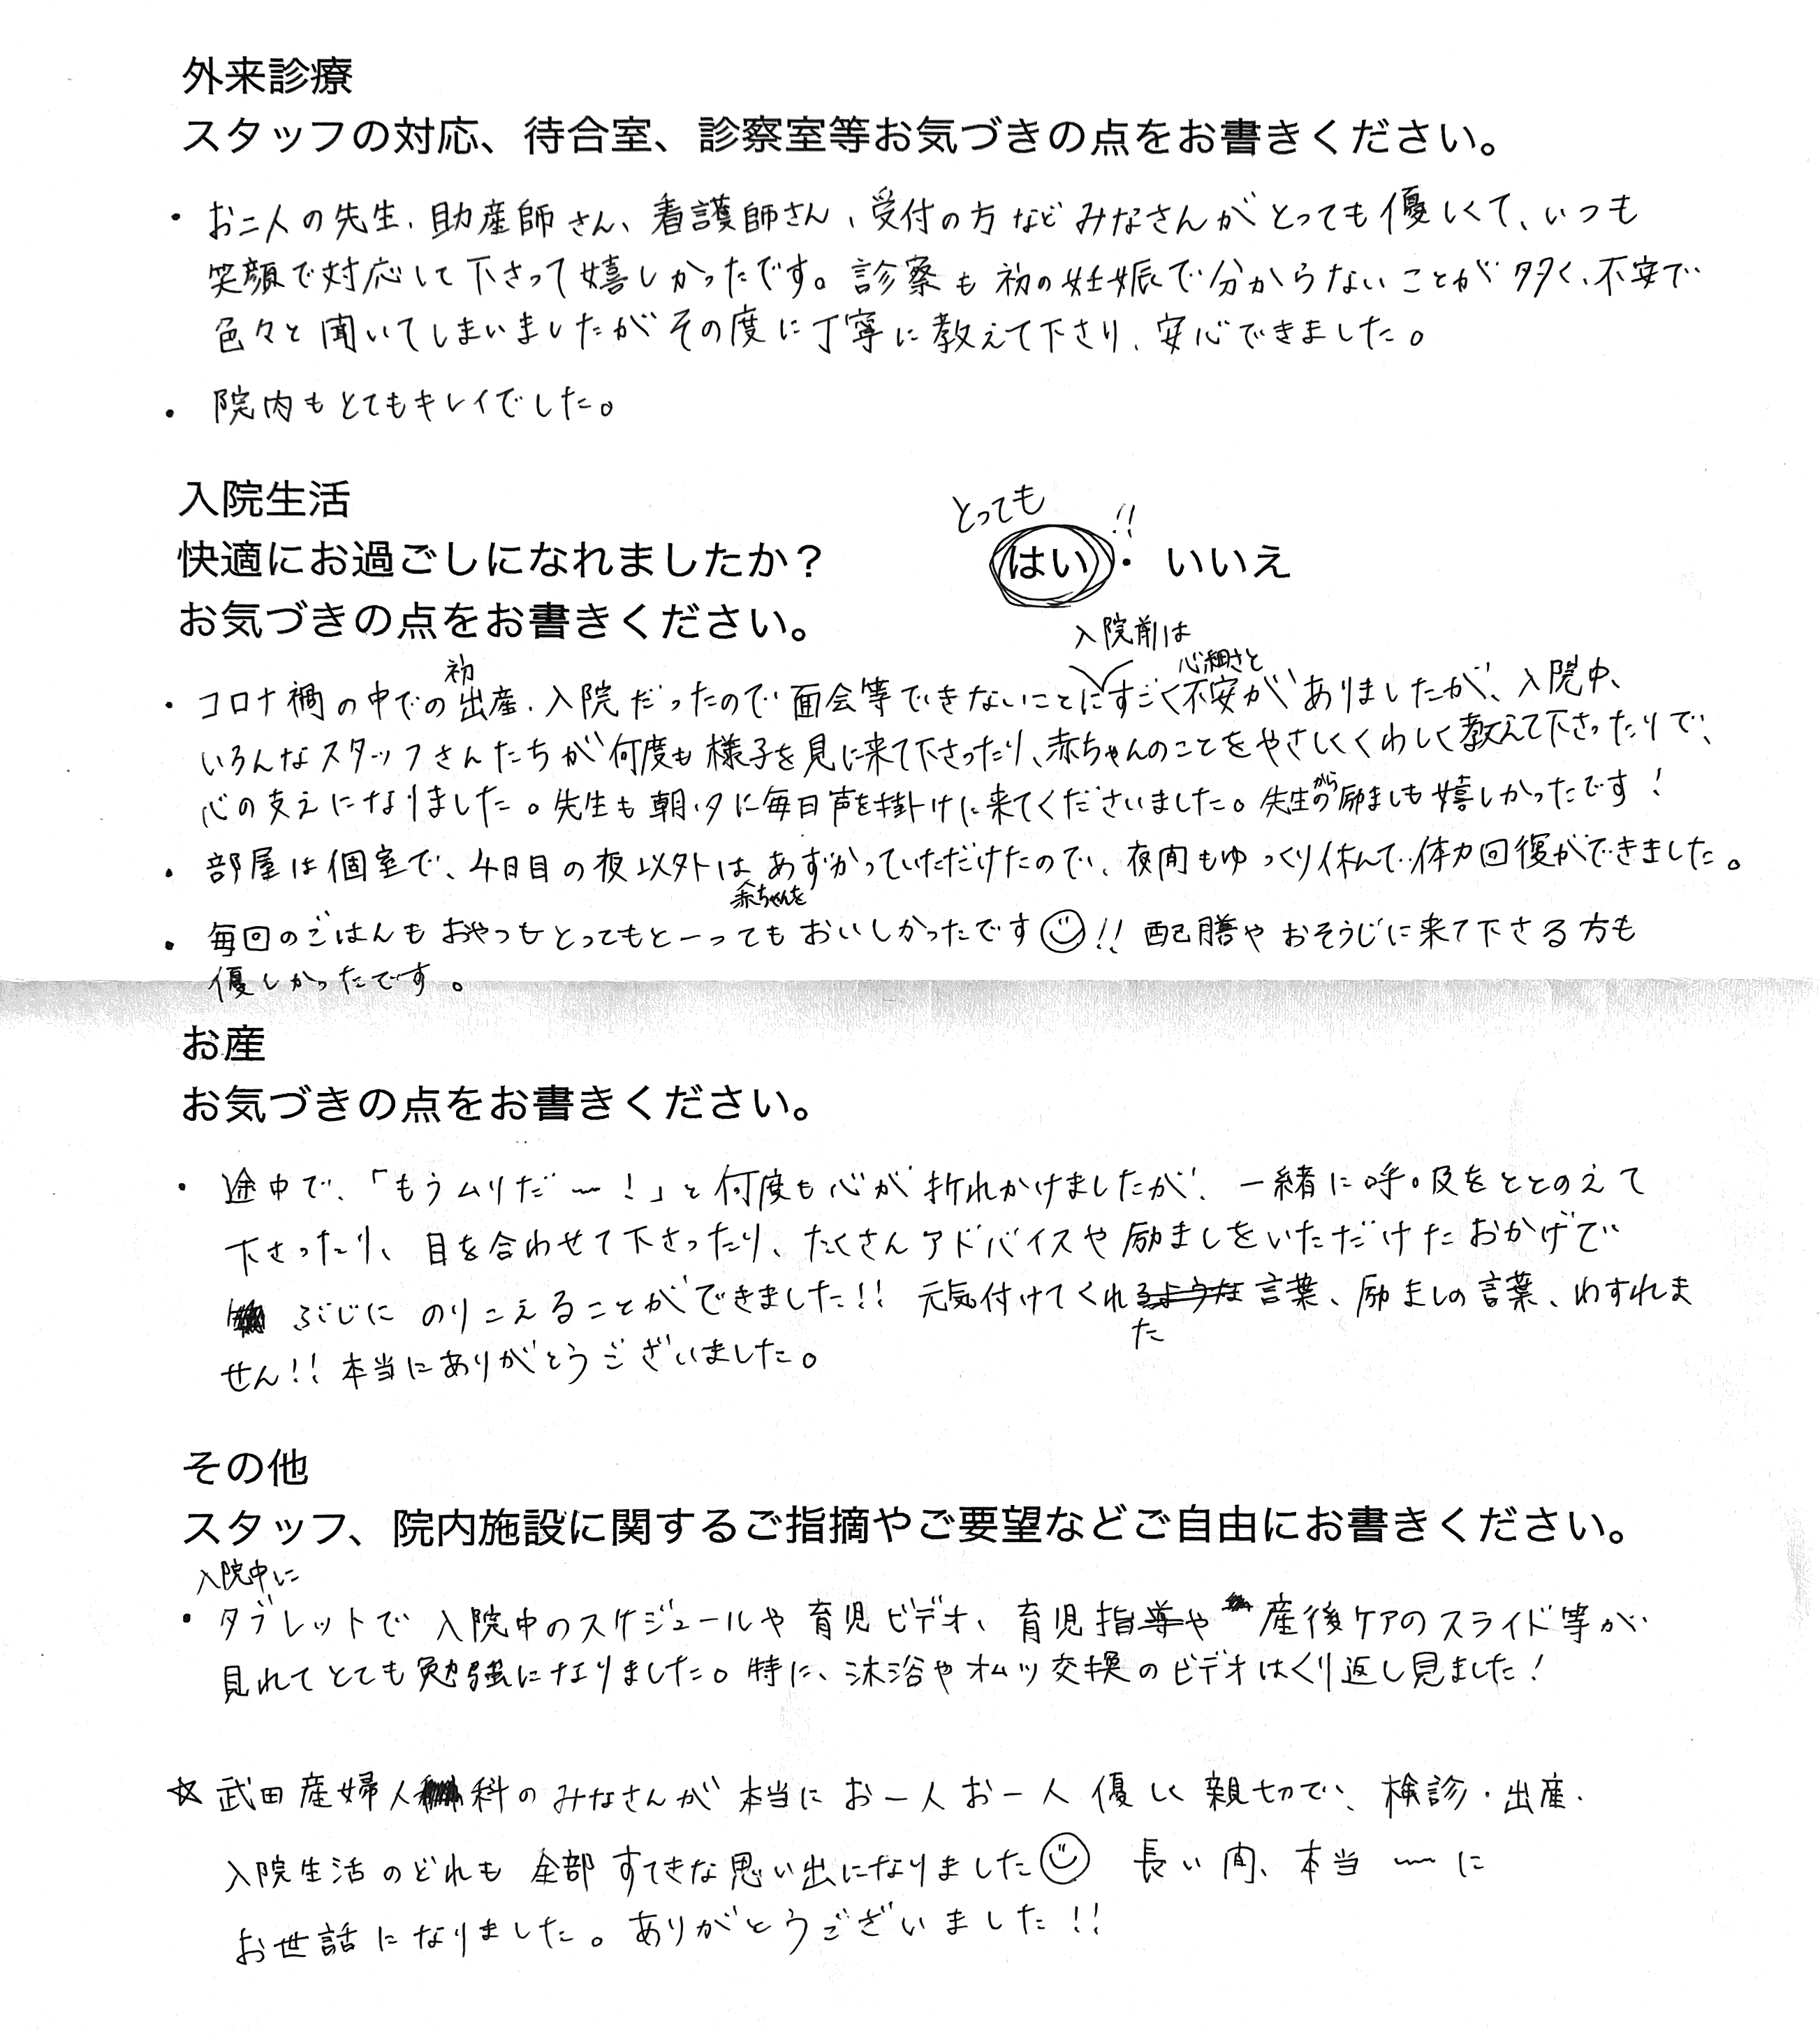 外来診療
スタッフの対応、待合室、診察室等お気づきの点をお書きください。
・お二人の先生、助産師さん、看護師さん、受付の方などみなさんがとっても優しくて、いつも
笑顔で対応して下さって嬉しかったです。診察も初の妊娠で分からないことが多く、不安で
色々と聞いてしまいましたがその度に丁寧に教えて下さり、安心できました。
・院内もとてもキレイでした。
入院生活
とっても
快適にお過ごしになれましたか？ はい!!・いいえ
お気づきの点をお書きください。
・コロナ禍の中での初出産、入院だったので面会等できないことに入院前はすごく心細さと不安がありましたが、入院中、
いろんなスタッフさんたちが何度も様子を見に来て下さったり、赤ちゃんのことをやさしくくわしく教えて下さったりで、
心の支えになりました。先生も朝、夕に毎日声を掛けに来てくださいました。先生から励ましも嬉しかったです！
・部屋は個室で、4日目の夜以外は赤ちゃんをあずかっていただけたので、夜間もゆっくり休んで、体力回復ができました。
・毎回のごはんもおやつもとってもとーってもおいしかったです!! 配膳やおそうじに来て下さる方も
優しかったです。
お産
お気づきの点をお書きください。
・途中で、「もうムリだ〜！」と何度も心が折れかけましたが、一緒に呼吸をととのえて
下さったり、目を合わせて下さったり、たくさんアドバイスや励ましをいただけたおかげで
ぶじにのりこえることができました!! 元気付けてくれた言葉、励ましの言葉、わすれま
せん!! 本当にありがとうございました。
その他
スタッフ、院内施設に関するご指摘やご要望などご自由にお書きください。
入院中に
・タブレットで入院中のスケジュールや育児ビデオ、育児指導や産後ケアのスライド等が
見れてとても勉強になりました。特に、沐浴やオムツ交換のビデオはくり返し見ました！
☆武田産婦人科のみなさんが本当にお一人お一人優しく親切で、検診・出産・
入院生活のどれも全部すてきな思い出になりました 長い間、本当〜に
お世話になりました。ありがとうございました!!